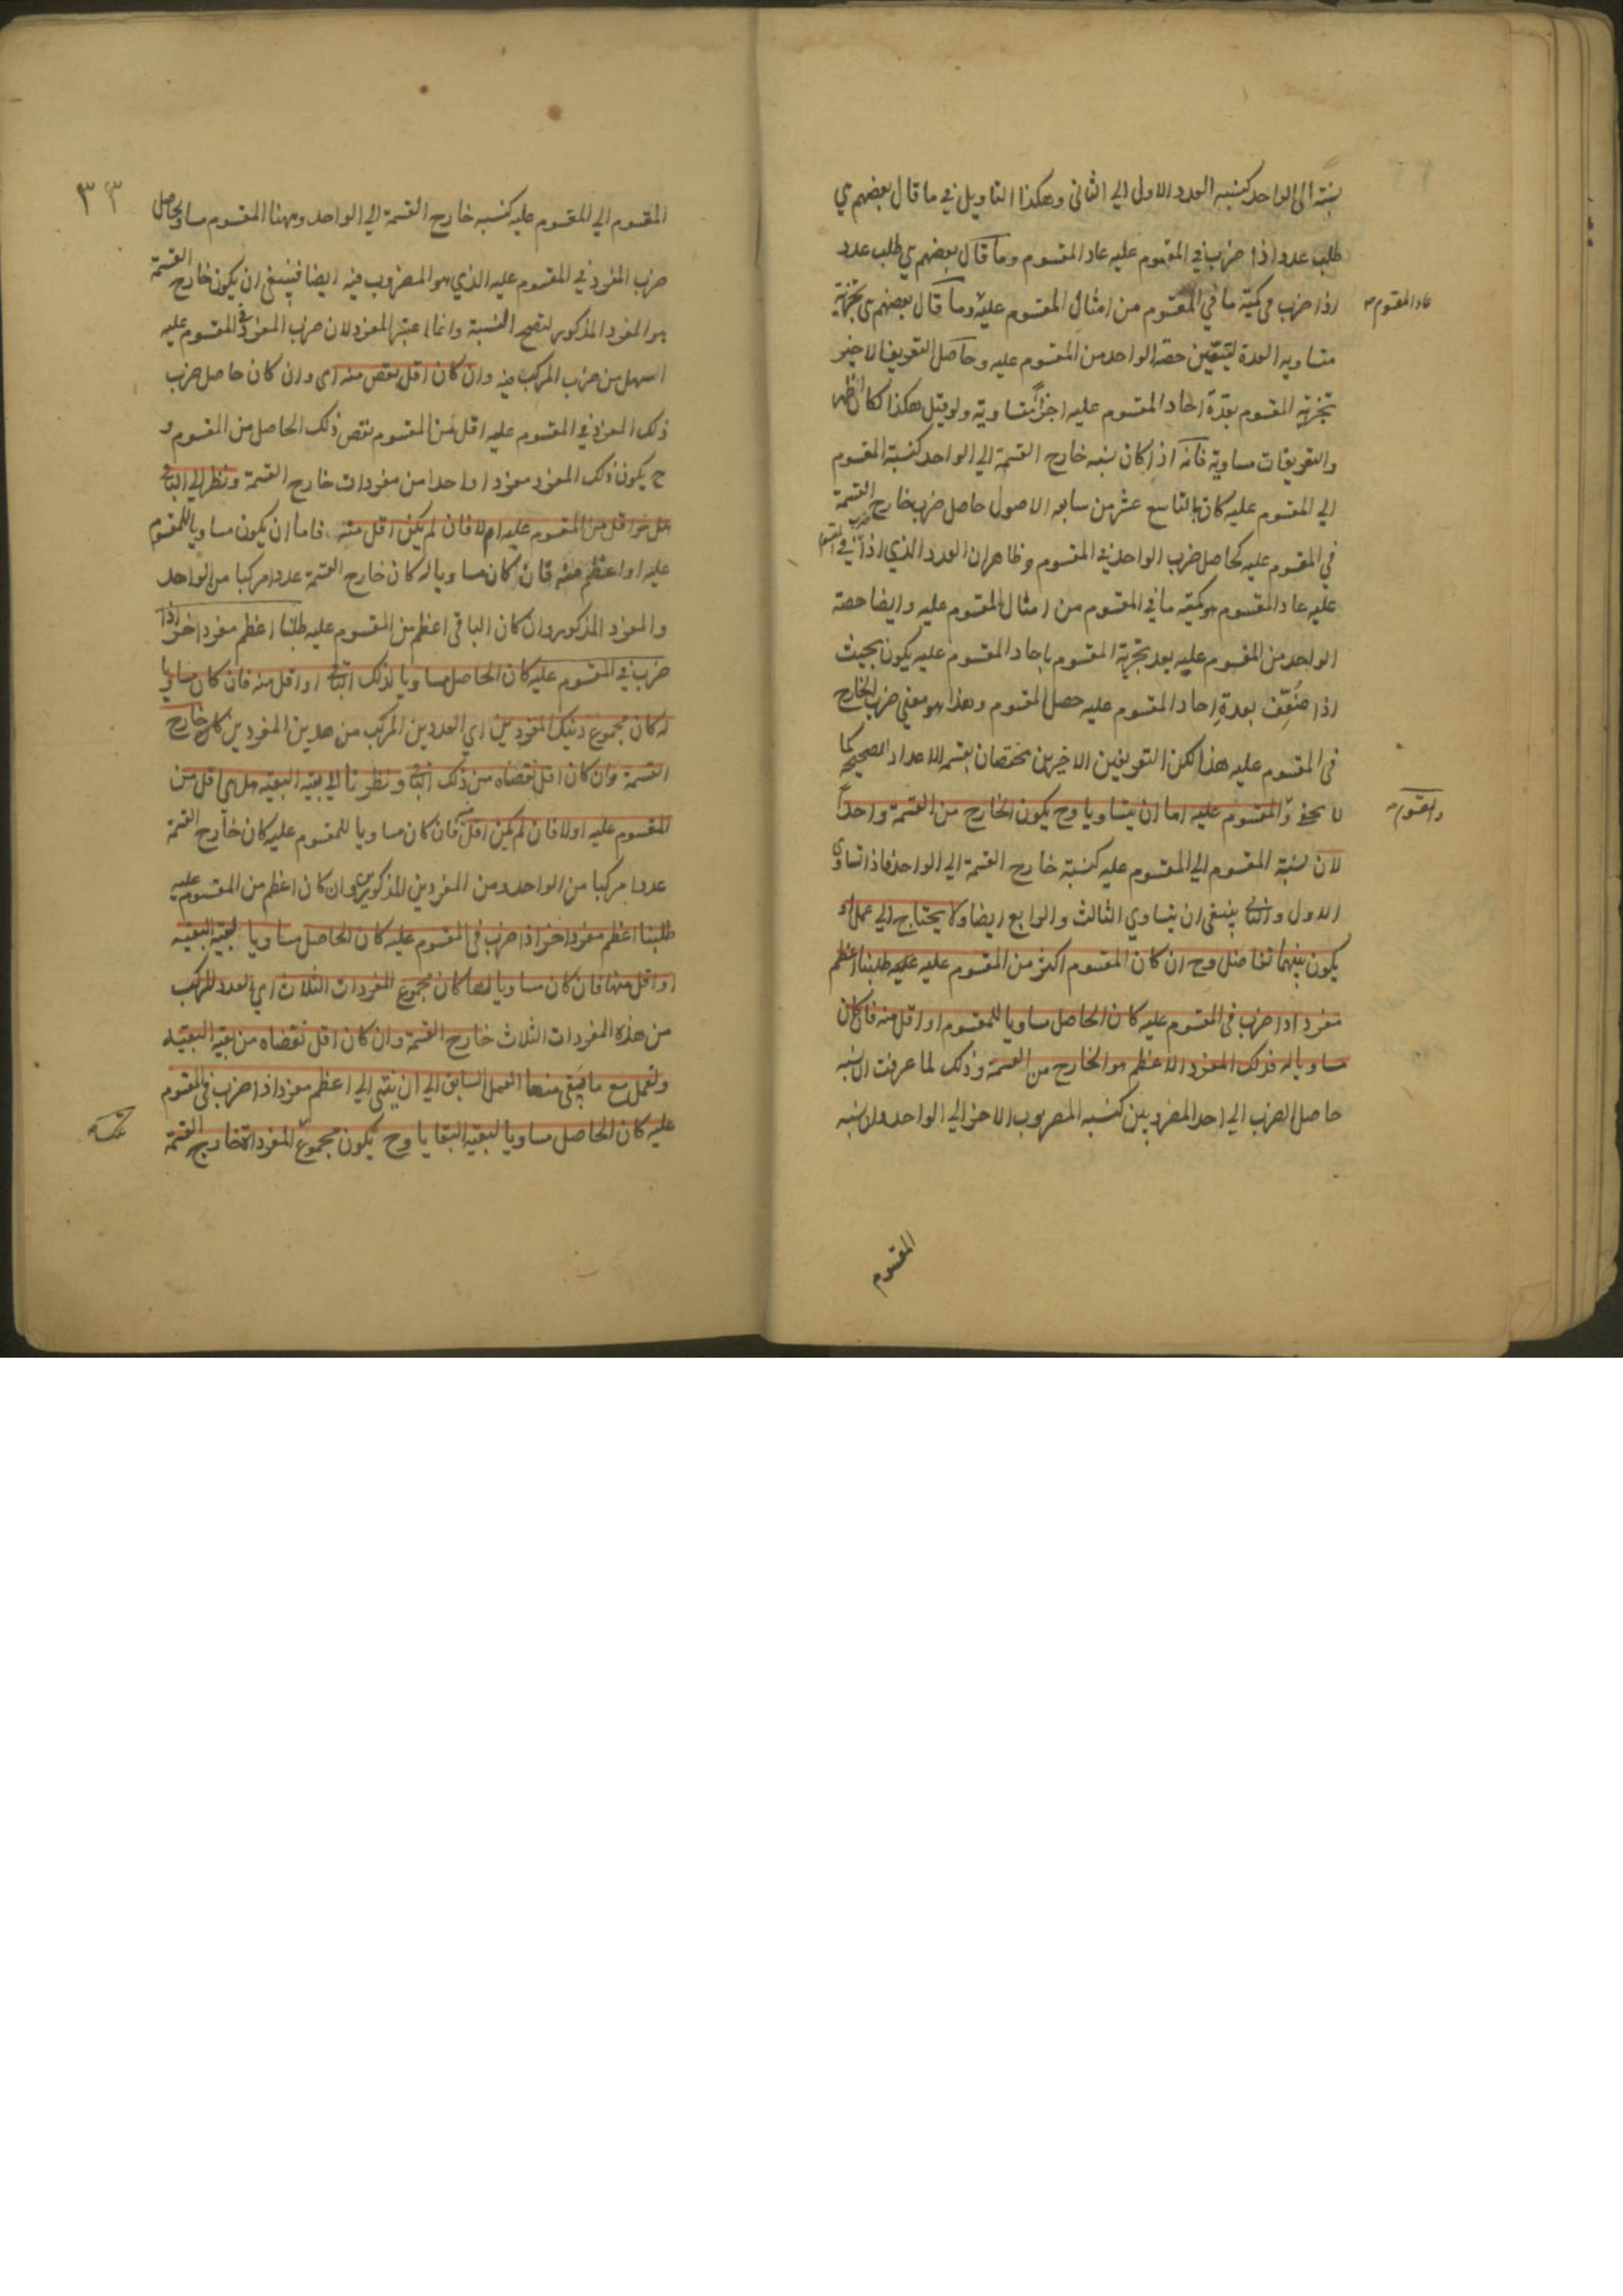 نسبته الى الواحد كنسبه العدد الاول الي الثانى وهكذا التاويل في ما قال بعضهم هي
طلب عدد اذا ضرب في المقسوم عليه عاد المقسوم وما قال بعضهم هي طلب عدد
اذا ضرب فى كمية ما في المقسوم من امثال المقسوم عليه وما قال بعضهم هى تجزية
عاد المقسوم
متساويه العدة ليتبين حصة الواحد من المقسوم عليه وحاصل التعريف الاخير
تجزيه المقسوم بعدة احاد المقسوم عليه اجزأ متساويه ولو قيل هكذا لكان اظهر
والتعريفات متساوية فانه اذا كان نسبه خارج القسمة الي الواحد كنسبة المقسوم
الي المقسوم عليه كان بالتاسع عشر من سابعه الاصول حاصل ضرب خارج القسمة
في المقسوم عليه كحاصل ضرب الواحد في المقسوم وظاهر ان العدد الذي اذا ضرب في المقسوم
عليه عاد المقسوم هو كمية ما في المقسوم من امثال المقسوم عليه وايضا حصته
الواحد من المقسوم عليه بعد تجزية المقسوم باحاد المقسوم عليه يكون بحيث
اذا ضُعِّف بعدةِ احاد المقسوم عليه حصل المقسوم وهذا هو معني ضرب الخارج
فى المقسوم عليه هذا لكن التعريفين الاخيرين مختصان بقسم الاعداد الصحيحه كما
لا يخفى والمقسوم عليه اما ان يتساويا وح يكون الخارج من القسمة واحداً
والمقسوم
لان نسبة المقسوم الي المقسوم عليه كنسبة خارج القسمة الي الواحد فاذا تساوى
الاول والثانى ينبغى ان يتساوي الثالث والرابع ايضا ولا يحتاج الي عمل او
يكون بينهما تفاضل وح ان كان المقسوم اكثر من المقسوم عليه عليه طلبنا اعظم
مفرد اذا ضرب فى المقسوم عليه كان الحاصل مساويا للمقسوم او اقل منه فان كان
مساويا له فذلك المفرد الاعظم هو الخارج من القسمة وذلك لما عرفت ان نسبه
حاصل الضرب الي احد المضروبين كنسبه المضروب الاخر الي الواحد وان نسبه
المقسوم
٣٣
المقسوم الي المقسوم عليه كنسبه خارج القسمة الي الواحد وههنا المقسوم مساو لحاصل
ضرب المفرد في المقسوم عليه الذي هو المضروب فيه ايضا فينبغى ان يكون خارج القسمة
هو المفرد المذكور لتصح النسبة وانما اعتبر المفرد لان ضرب المفرد فى المقسوم عليه
اسهل من ضرب المركب فيه وان كان اقل نقص منه اى وان كان حاصل ضرب
ذلك المفرد في المقسوم عليه اقل من المقسوم نقص ذلك الحاصل من المقسوم و
ح يكون ذلك المفرد مفردا واحدا من مفردات خارج القسمة ونظر الي الباقى
هل هو اقل من المقسوم عليه ام لا فان لم يكن اقل منه فاما ان يكون مساويا للمقسوم
عليه او اعظم منه فان كان مساويا له كان خارج القسمة عددا مركبا من الواحد
والمفرد المذكور وان كان الباقى اعظم من المقسوم عليه طلبنا اعظم مفرد اخر اذا
ضرب في المقسوم عليه كان الحاصل مساويا لذلك الباقى او اقل منه فان كان مساويا
له كان مجموع ذينك المفردين اي العددين المركب من هذين المفردين كان خارج
القسمة وان كان اقل نقصناه من ذلك الباقى ونظرنا الي بقيه البقيه هل هى اقل من
المقسوم عليه اولا فان لم يكن اقل منه فان كان مساويا للمقسوم عليه كان خارج القسمة
عددا مركبا من الواحد ومن المفردين المذكورين وان كان اعظم من المقسوم عليه
طلبنا اعظم مفرد اخر اذا ضرب فى المقسوم عليه كان الحاصل مساويا لبقيه البقيه
او اقل منها فان كان مساويا لها كان مجموع المفردات الثلاث اي العدد المركب
من هذه المفردات الثلاث خارج القسمة وان كان اقل نقصناه من بقيه البقيه
ونعمل مع ما يبقى منها العمل السابق الي ان ينتهى الي اعظم مفرد اذا ضرب فى المقسوم
عليه كان الحاصل مساويا لبقيه البقايا وح يكون مجموع المفردات خارج القسمة